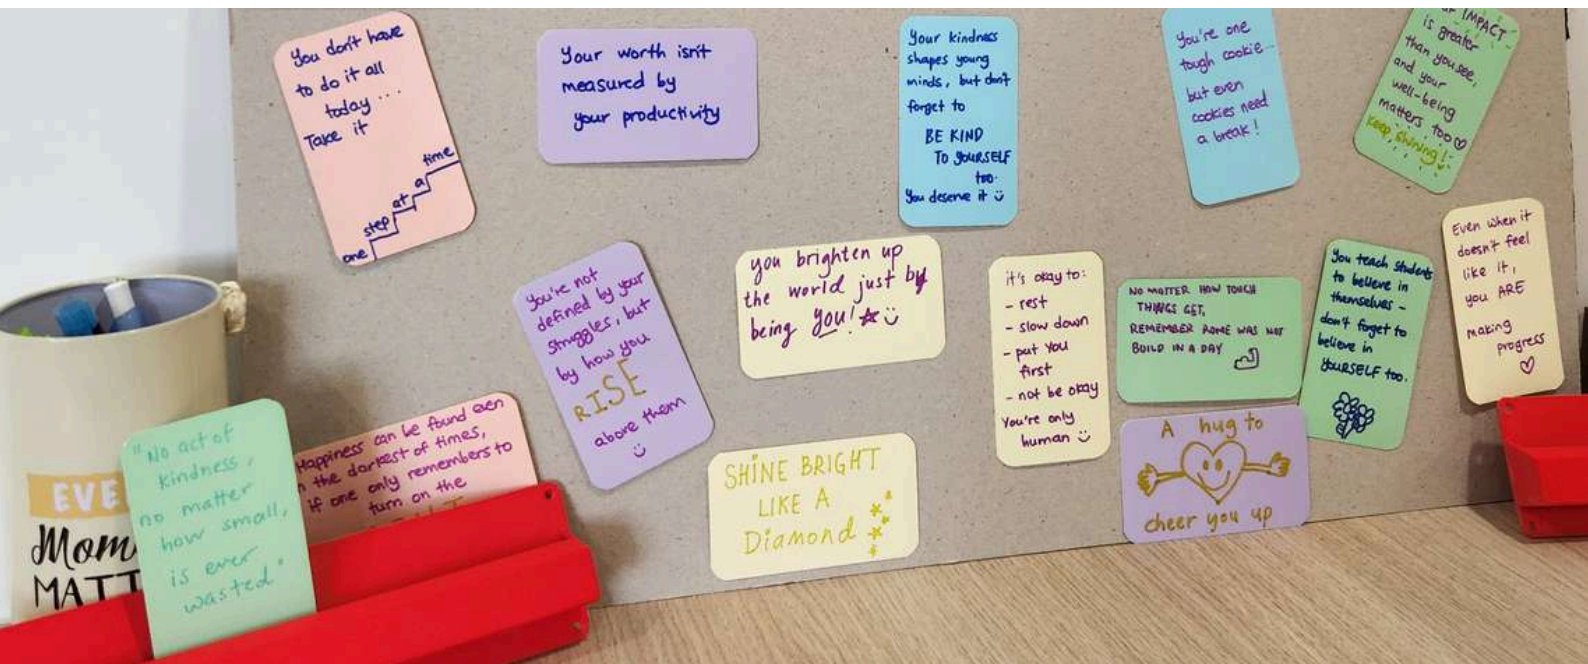 You don't have
to do it all
today ....
Take it
one step at a time
Your worth isn't
measured by
your productivity
Your kindness
shapes young
minds, but don't
forget to
BE KIND
TO YOURSELF
too.
You deserve it
You're one
tough cookie...
but even
cookies need
a break!
IMPACT
is greater
than you see,
and your
well-being
matters too
Keep shining!
You're not
defined by your
struggles, but
by how you
RISE
above them
you brighten up
the world just by
being you!
it's okay to:
- rest
- slow down
- put you
first
- not be okay
You're only
human
NO MATTER HOW TOUGH
THINGS GET,
REMEMBER ROME WAS NOT
BUILD IN A DAY
You teach students
to believe in
themselves -
don't forget to
believe in
YOURSELF too.
Even when it
doesn't feel
like it,
you ARE
making
progress
"No act of
kindness,
no matter
how small,
is ever
wasted"
Happiness can be found even
in the darkest of times,
if one only remembers to
turn on the
SHINE BRIGHT
LIKE A
Diamond
A hug to
cheer you up
EVE
Mom
MATT